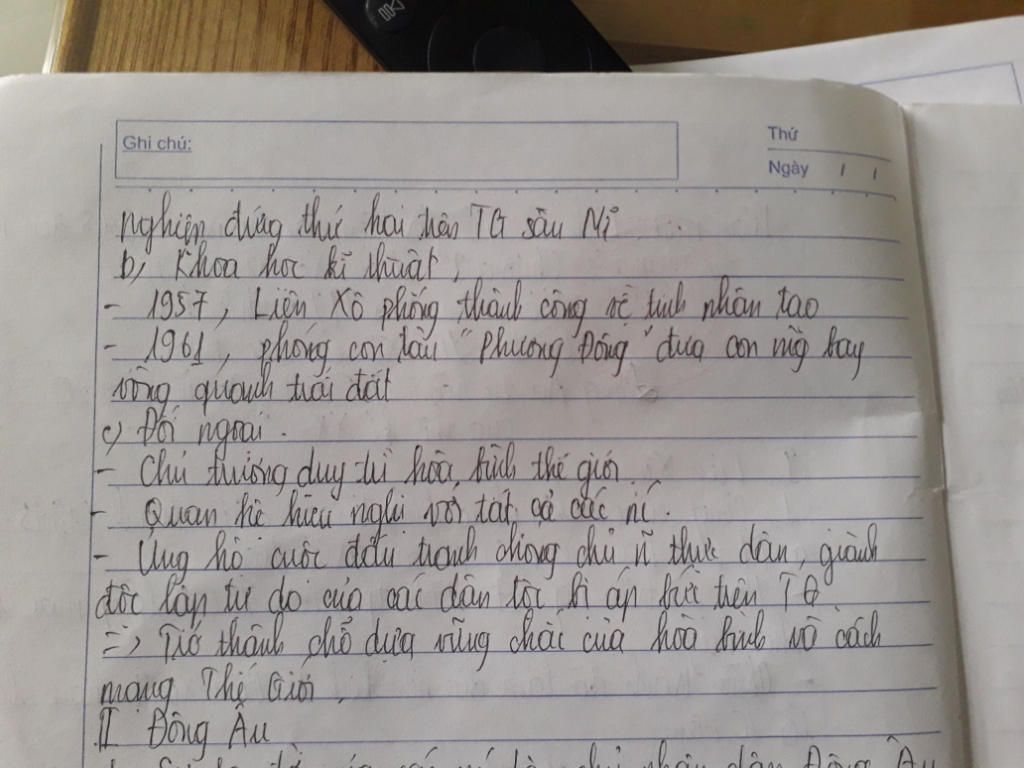 Ghi chú:
Thứ
Ngày / /
nghiệp đứng thứ hai trên TG sau Mĩ
b, Khoa học kĩ thuật,
- 1957, Liên Xô phóng thành công vệ tinh nhân tạo
- 1961, phóng con tàu "Phương Đông" đưa con ng` bay
vòng quanh trái đất
c, Đối ngoại.
- Chủ trương duy trì hòa bình thế giới.
- Quan hệ hữu nghị với tất cả các ní.
- Ủng hộ cuộc đấu tranh chống chủ ñ thực dân, giành
độc lập tự do của các dân tộc bị áp bức trên TG
=> Trở thành chỗ dựa vững chắc của hòa bình và cách
mạng Thế Giới.
II Đông Âu